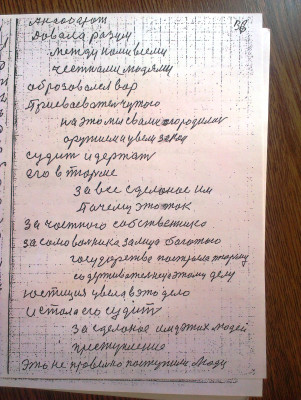 58
довала разум
между нами всеми
честными людьми
образовался вор
присвоевател чужого
на этом и свами огородили
оружием и увел закон
судит и держат
его в тюрме
за все сделаное им
Почему это так
За частного собственника
за самоволника за лица богатого
государство построило тюрму
содержательницу этому делу
юстиция увела в это дело
и стала его судит
за сделаное им этих людей
преступление
Это не правелно поступили люди